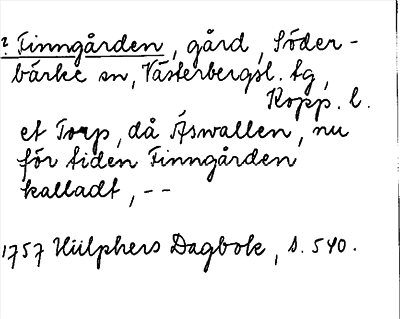 ? Finngården, gård, Söder-
bärke sn, Västerbergsl. tg,
Kopp. l.
et Torp, då Åswallen, nu
för tiden Finngården
kalladt, --
1757 Hülphers Dagbok, s. 540.